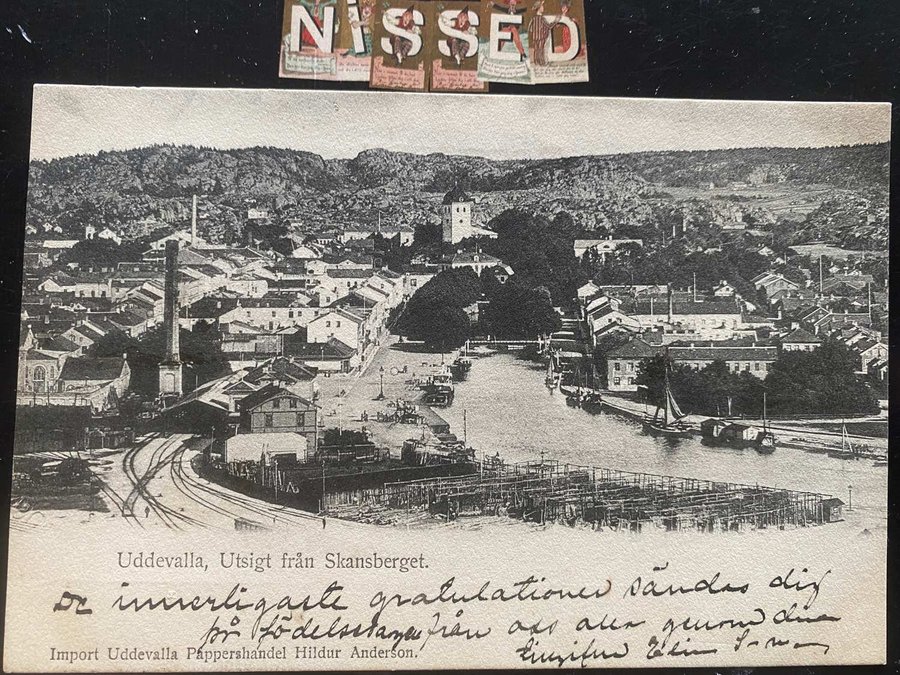 NiSSED
Uddevalla, Utsigt från Skansberget.
De innerligaste gratulationer sändes dig
på födelsedagen från oss alla genom dina
Import Uddevalla Pappershandel Hildur Anderson.
Elin